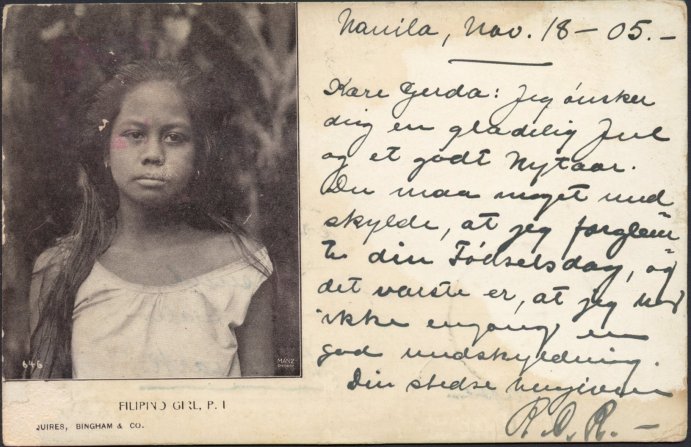 Manila, Nov. 18 - 05. -
Kære Gerda: Jeg ønsker
dig en glædelig Jul
og et godt Nytaar.
Du maa meget und
skylde, at jeg forglem
te din Fødselsdag, og
det værste er, at jeg
ikke engang en
god undskyldning.
Din stedse hengivern
R.O.R. -
646
MANZ
FILIPINO GIRL, P. I
JUIRES, BINGHAM & CO.